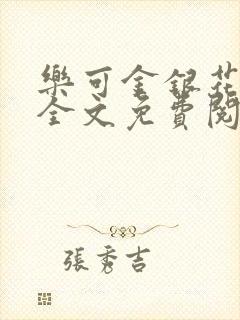 樂可金銀花
全文免費閱
張秀吉